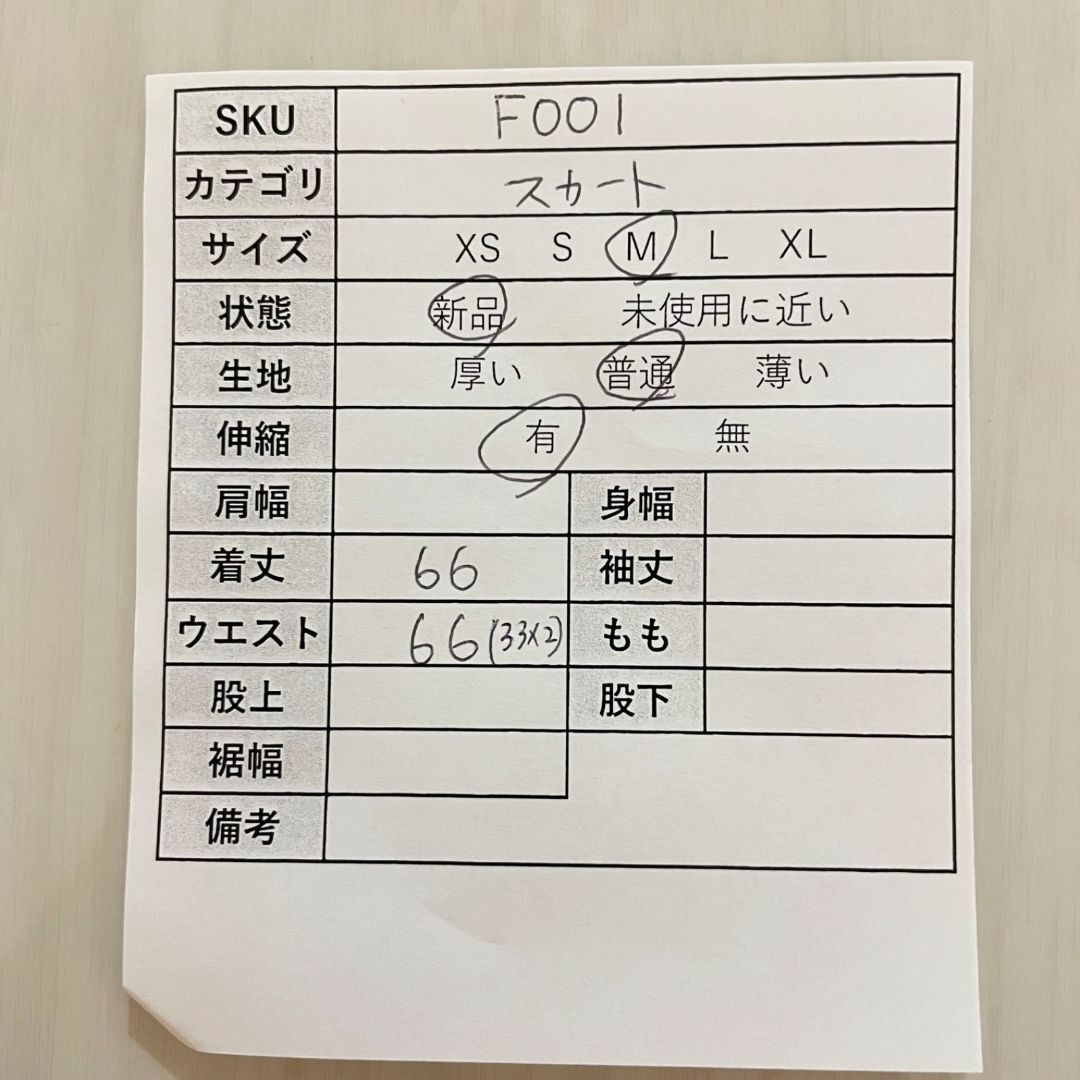 SKU F001
カテゴリ スカート
サイズ XS S M L XL
状態 新品 未使用に近い
生地 厚い 普通 薄い
伸縮 有 無
肩幅 身幅
着丈 66 袖丈
ウエスト 66(33×2) もも
股上 股下
裾幅
備考